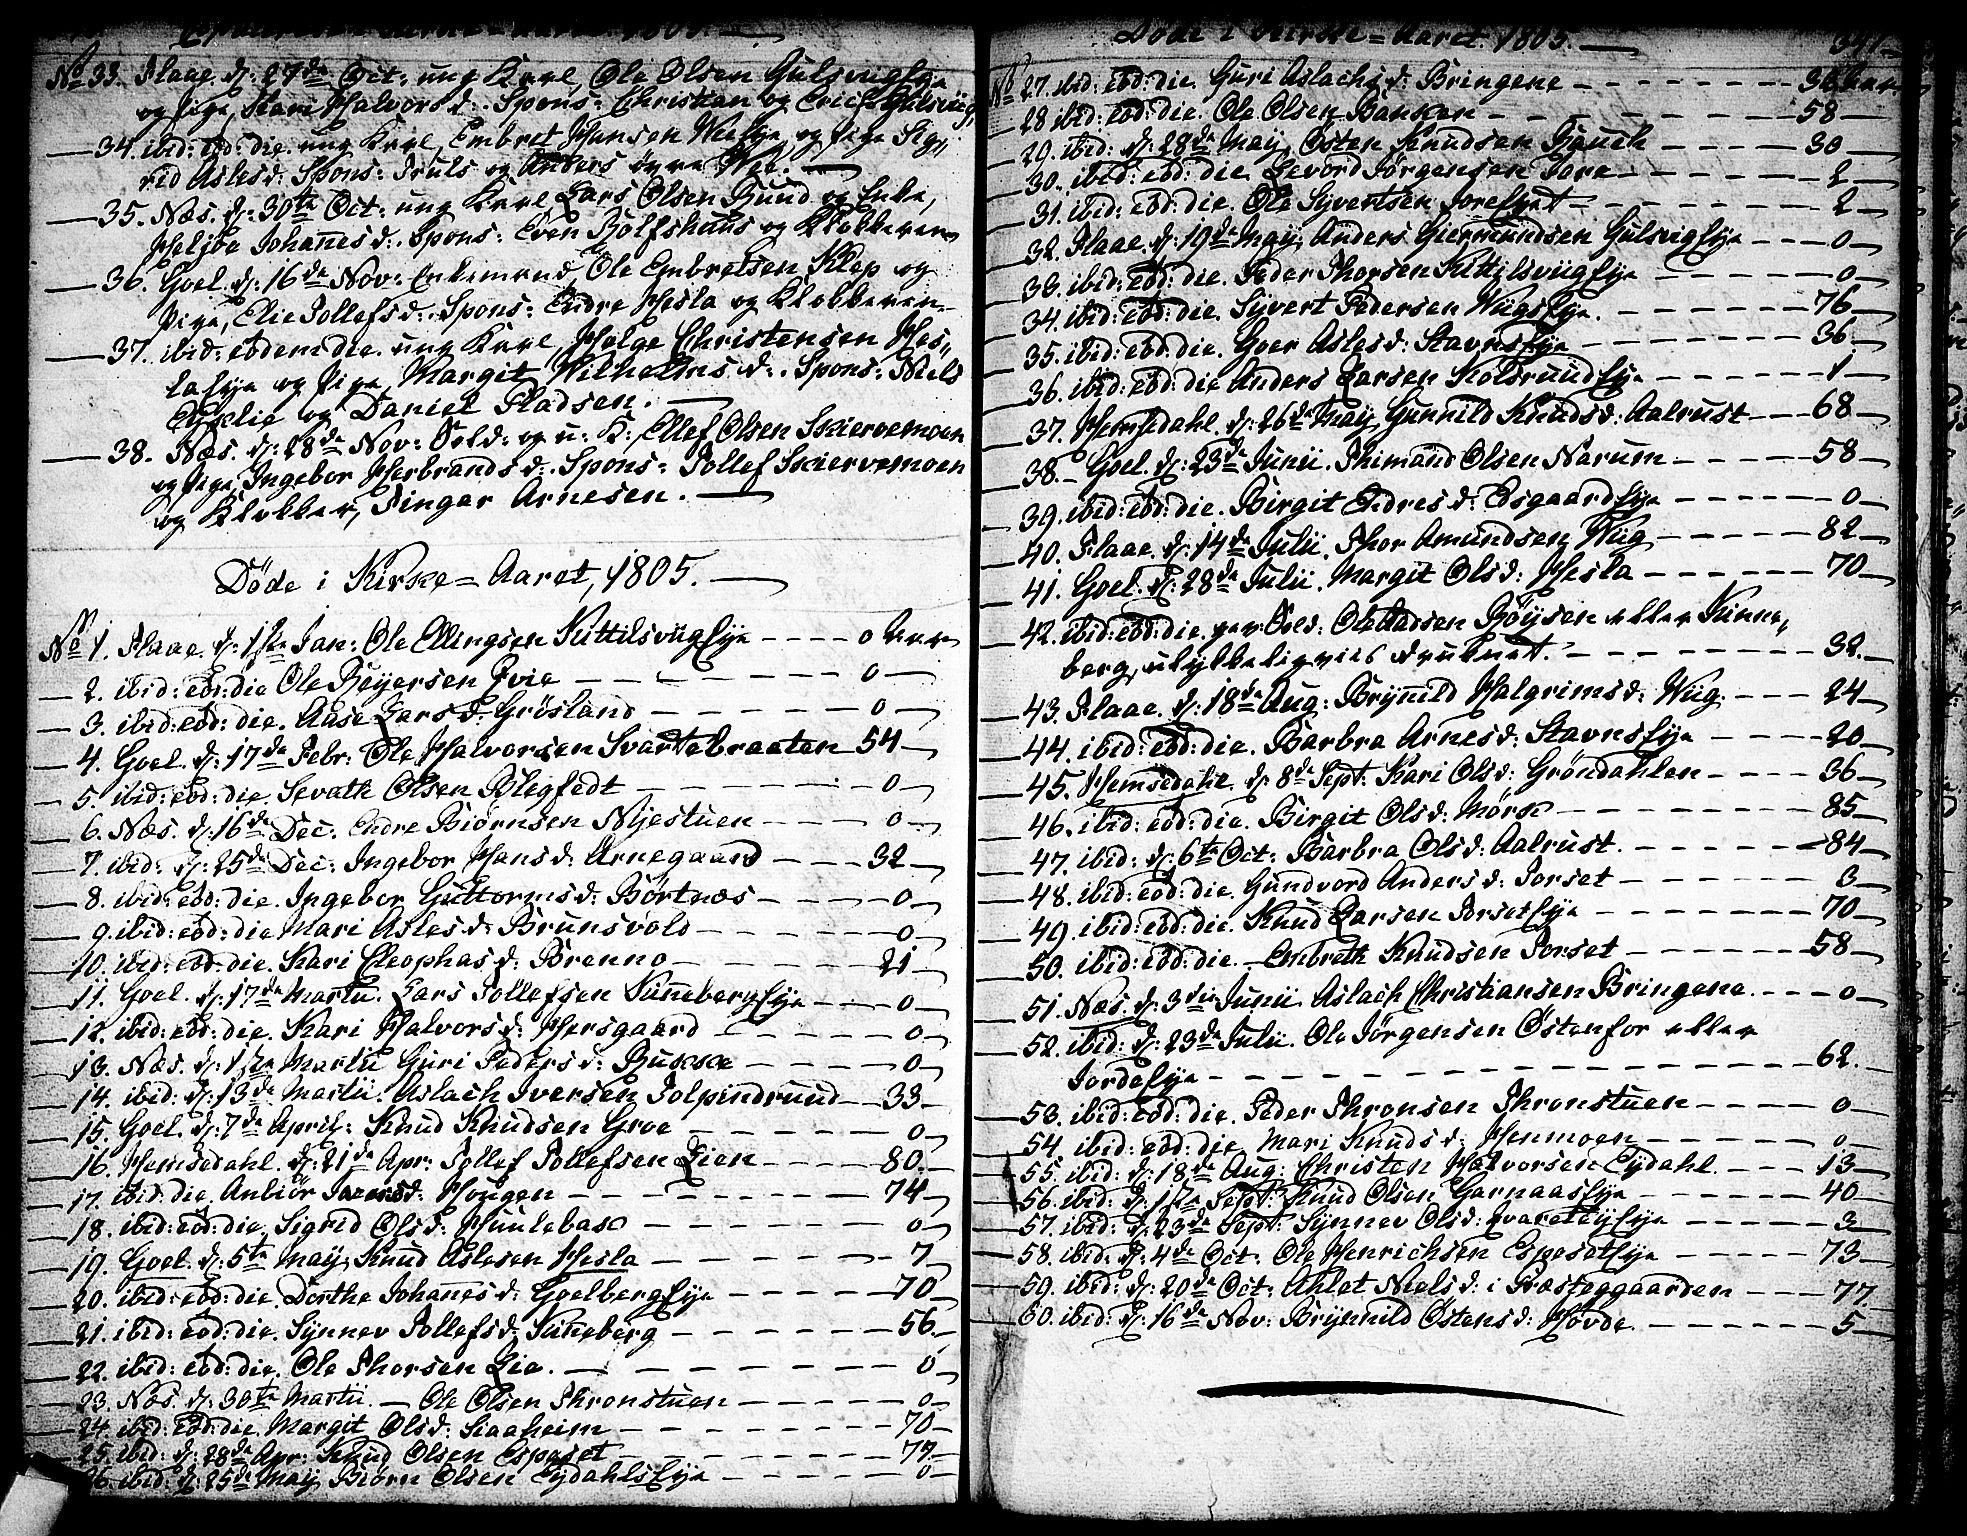 No 33. Flaae. d: 27de Oct: ung Karl, Ole Olsen Gulsviigeye
og Pige, Kari Halvorsd:. Spons: Christian og Erich Gulsviig,
34. ibid: ebd: die. ung Karl, Embret Hansen og Pige Sig„
rid Aslesd: Spons: Truls og Anders
35. Næs. d: 30te Oct: ung Karl Lars Olsen Ruud og Enke,
Johanesd:. Spons: Even Rolfshuus og Klokkeren
36. Goel. d: 16de Nov: Enkemand Ole Embretsen Klep og
Pige, Elie Tollefsd:. Spons: Endre Hesla og Klokkeren.
37. ibid: ebdem die. ung Karl, Helge Christensen Hes„
laeye og Pige, Margit Wilhelmsd:. Spons: Niels
og Daniel Pladsen.
38. Næs. d: 28de Nov: Sold: og u: K: Ellef Olsen Skiervemoen
og Pige, Ingebor Herbrandsd:. Spons: Tollef Skiervemoen
og Klokker, Finger Arnesen.
Döde i Kirke=Aaret, 1805.
No 1. Flaae. d: 1ste Jan: Ole Ellingsen Kittilsviigeye - - - - 0 Aar
2. ibid: ebd: die Ole Reyersen Hvie - - - - 0
3. ibid: ebd: die. Aase Larsd. Grösland - - - - 0
4. Goel. d: 17de Febr: Ole Halvorsen Svartebraaten 54
5. ibid: ebd: die. Sevath Olsen Blegfedt - - - - 0
6. Næs. d: 16de Dec: Endre Biörnsen Nijestuen - - - - 0
7. ibid: d: 25de Dec: Ingebor Hansd: Arnegaard - - - 32
8. ibid: ebd: die. Ingebor Guttormsd: Börtnæs - - - - 0
9. ibid: ebd: die Mari Aslesd: Brunsvold - - - - 0
10. ibid: ebd: die. Kari Cleophasd: Brenno - - - - 21
11. Goel. d: 17de Martii. Lars Tollefsen Sünebergeye - - - 0
12. ibid: ebd: die. Kari Halvorsd: Hersgaard - - - - 0
13. Næs. d: 1ste Martii Guri Pedersd: Rukke - - - - 0
14. ibid: d: 13de Martii. Aslach Iversen Tolpindruud - 33
15. Goel. d: 7de April: Knud Knudsen Groe - - - - 0
16. Hemsedahl. d: 21de Apr: Tollef Tollefsen Lien - - - 80
17. ibid: die. Anbiör Hougen - - - - 74
18. ibid: ebd: die, Sigrid Olsd: - - - - 0
19. Goel. d: 5te May, Knud Aslesen Hesla - - - - 7
20. ibid: ebd: die. Dorthe Johanesd: Goelbergeye - - - - 70
21. ibid: ebd: die. Synnev Tollefsd: Süneberg - - - - 56
22. ibid: ebd: die. Ole Thorsen Lie. - - - - 0
23. Næs. d: 30te Martii. Ole Olsen Thronstuen - - - - 0
24. ibid: ebd: die. Margit Olsd: Kaaheim - - - - 70
25. ibid: d: 28de Apr: Knud Olsen Espeset - - - - 77
26. ibid: d: 25de May Biörn Olsen Eydahlseye - - - - 0
Döde i Kirke=Aaret 1805.
No 27. ibid: ebd: die. Guri Aslachsd: Bringene - - - - 36 Aar
28 ibid: ebd: die. Ole Olsen Banken - - - - 58
29. ibid: d: 28de May, Östen Knudsen Bauch - - - - 30
30. ibid: ebd: die. Levord Jörgensen Tore - - - - 2
31. ibid: ebd: die. Ole Syvertsen - - - - 2
32. Flaae. d: 19de May, Anders Giermundsen Gulsvigeye - - - 0
33. ibid: ebd: die. Peder Thorsen Kittilsviigeye - - - 0
34. ibid: ebd: die. Syvert Pedersen Wiigseye. - - - 76
35. ibid: ebd: die. Goer Aslesd: Stavnseye - - - 36
36. ibid: ebd: die Anders Larsen Kolsruudeye - - - 1
37. Hemsedahl. d: 26de May, Gunnild Knudsd: Aalrust - - - 68
38. Goel. d: 23de Junii. Thimand Olsen Narum - - - 58
39. ibid: ebd: die. Birgit Endresd: Edsgaardeye - - - 0
40. Flaae. d: 14de Julii. Thor Amundsen Wiig - - - 82
41. Goel. d: 28de Julii. Margit Olsd: Hesla - - - 70
42. ibid: ebd: die. gev: Sold: Ole Böysen eller Sünne„
berg, ulykkeligviis druknet. - - - 32
43. Flaae. d: 18de Aug: Brynild Halgrimsd: Wiig - - - 24
44. ibid: ebd: die. Barbra Arnesd: Stavnseye - - - 20
45. Hemsedahl. d: 8de Sept: Kari Olsd: Gröndahlen - - - 36
46. ibid: ebd: die. Birgit Olsd: Mörk - - - 85
47. ibid: d: 6te Oct: Barbra Olsd: Aalrust. - - - 84
48. ibid: ebd: die. Gundvord Andersd: Torset - - - 3
49. ibid: ebd: die. Knud Larsen Torseteye - - - 70
50. ibid: ebd: die. Embreth Knudsen Torset - - - 58
51. Næs. d: 3die Junii. Aslach Christiansen Bringene. - - - 0
52. ibid: d: 23de Julii. Ole Jörgensen Östenfor eller
Jordeeye - - - 62.
53. ibid: ebd: die. Peder Thronsen Thronstuen - - - 0
54. ibid: ebd: die. Mari Knudsd: Henmoen - - - 0
55. ibid: d: 18de Aug: Christen Halvorsen Eydahl - - - 13
56. ibid: d: 1ste Sept: Knud Olsen Garnaaseye - - - 40
57. ibid: d: 23de Sept: Synnev Olsd: - - - 3
58. ibid: d: 4de Oct: Ole Henrichsen Espeseteye - - - 73
59. ibid: d: 20de Oct: Ahlet Nielsd: i Præstegaarden - - - 77
60. ibid: d: 16de Nov: Brynnild Östensd: Hovde. - - - 5